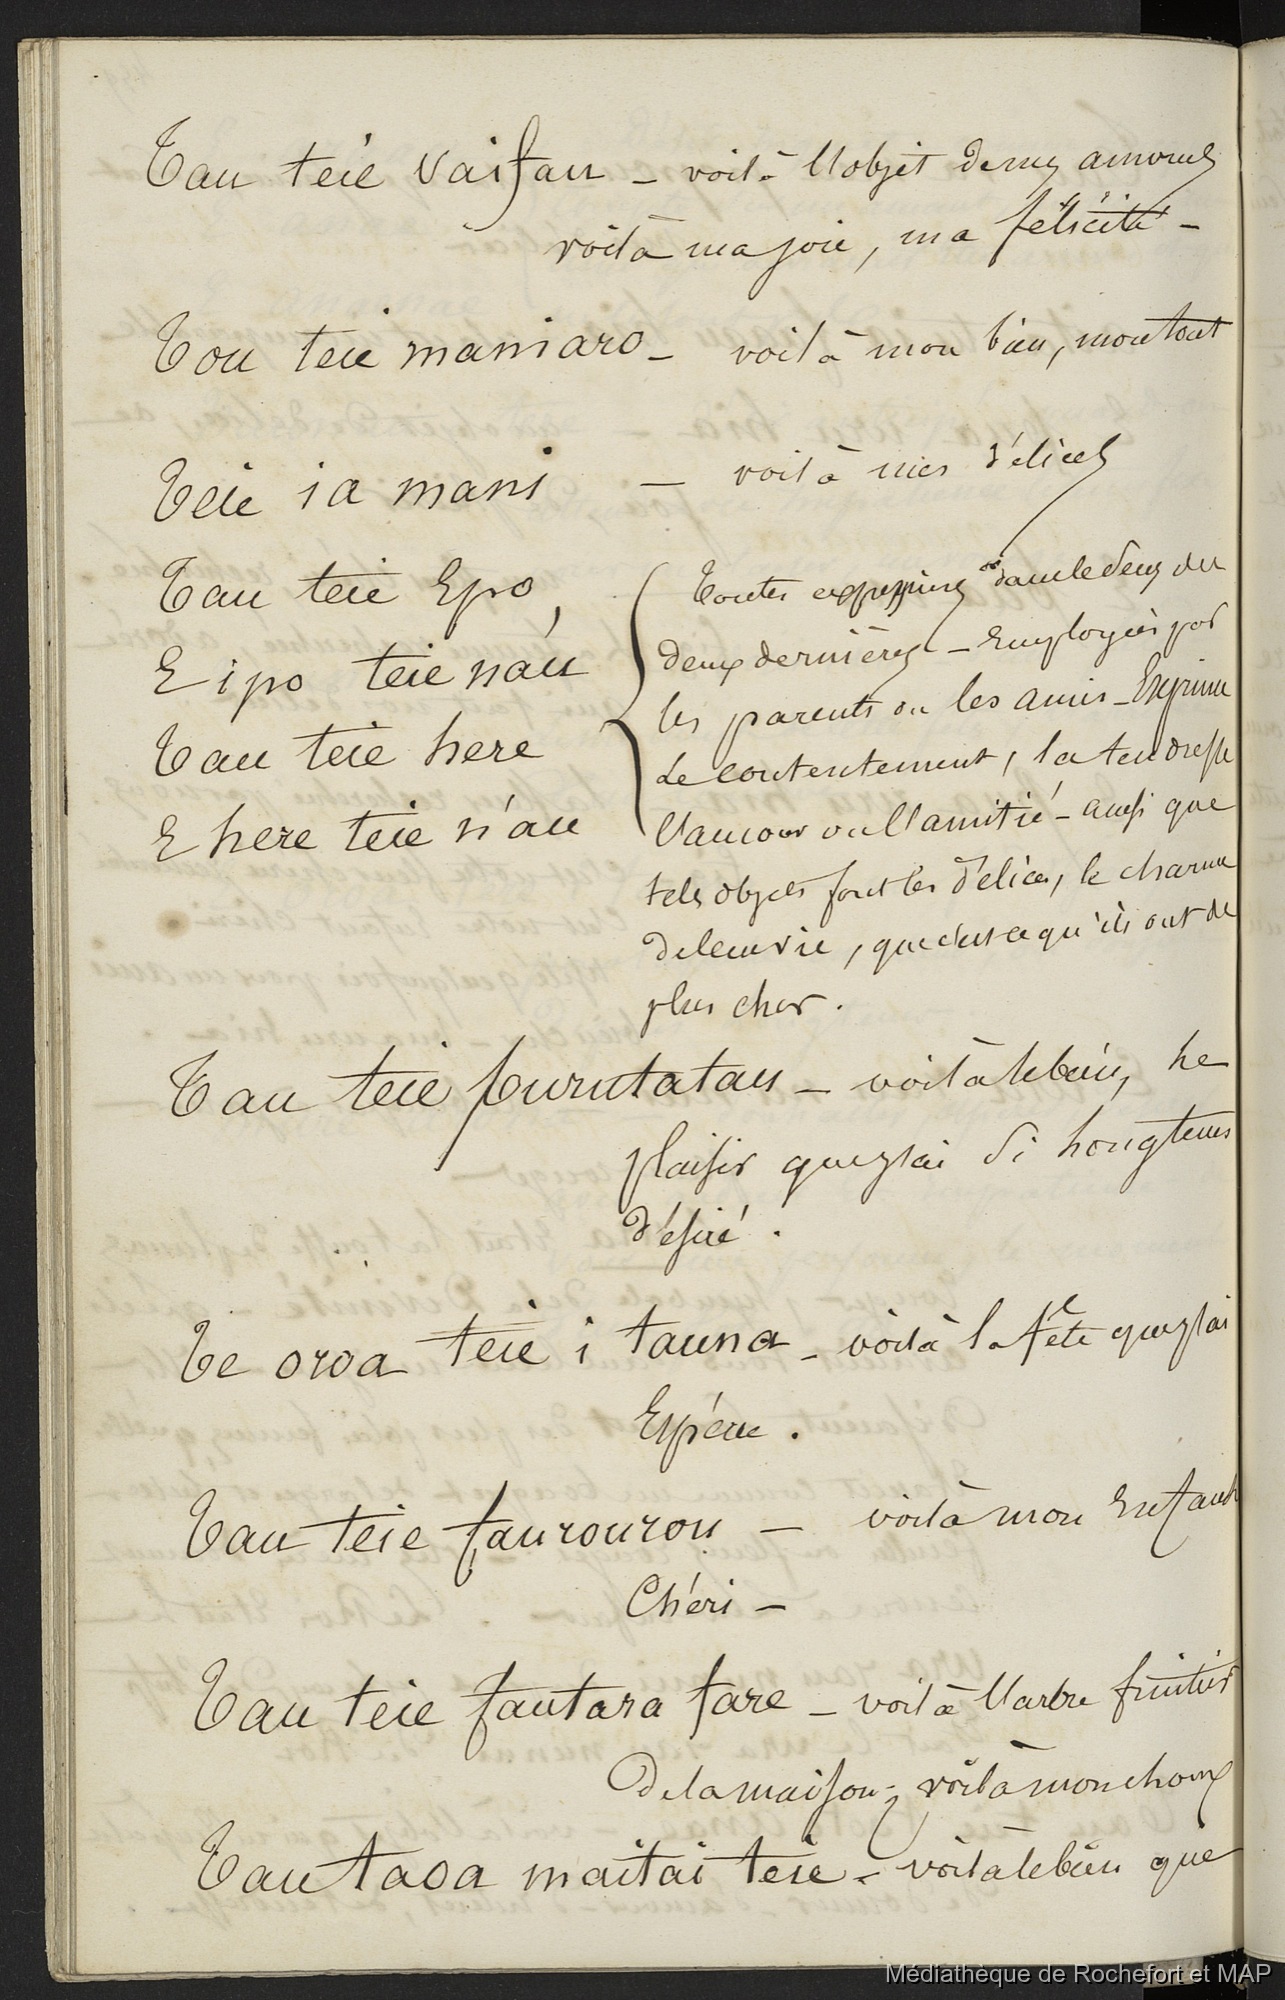 Tau teie vaifau - voilà l'objet de mes amours
voilà ma joie, ma félicité -
Tou teie maniaro - voilà mon bien, mon tout
Teie ia mani - voilà mes délices
Tau teie Epo,
E ipo teie náu
Tau teie here
E here teie n'au
Toutes expressions dans le sens des
deux dernières - Employées par
les parents ou les amis - Exprime
Le contentement, la tendresse
l'amour ou l'amitié - ainsi que
tels objets font les délices, le charme
de leur vie, que c'est ce qu'ils ont de
plus cher.
Tau teie purutatau - voilà le bien, le
plaisir que j'ai si longtems
désiré.
Te oroa teie i tauna - voilà la fête que j'ai
Espérée.
Tau teie faurourou - voilà mon Enfant
Chéri -
Tau teie fautara fare - voilà l'arbre fruitier
de la maison - voilà mon choux
Tau taoa maitai teie - voilà le bien que
Médiathèque de Rochefort et MAP